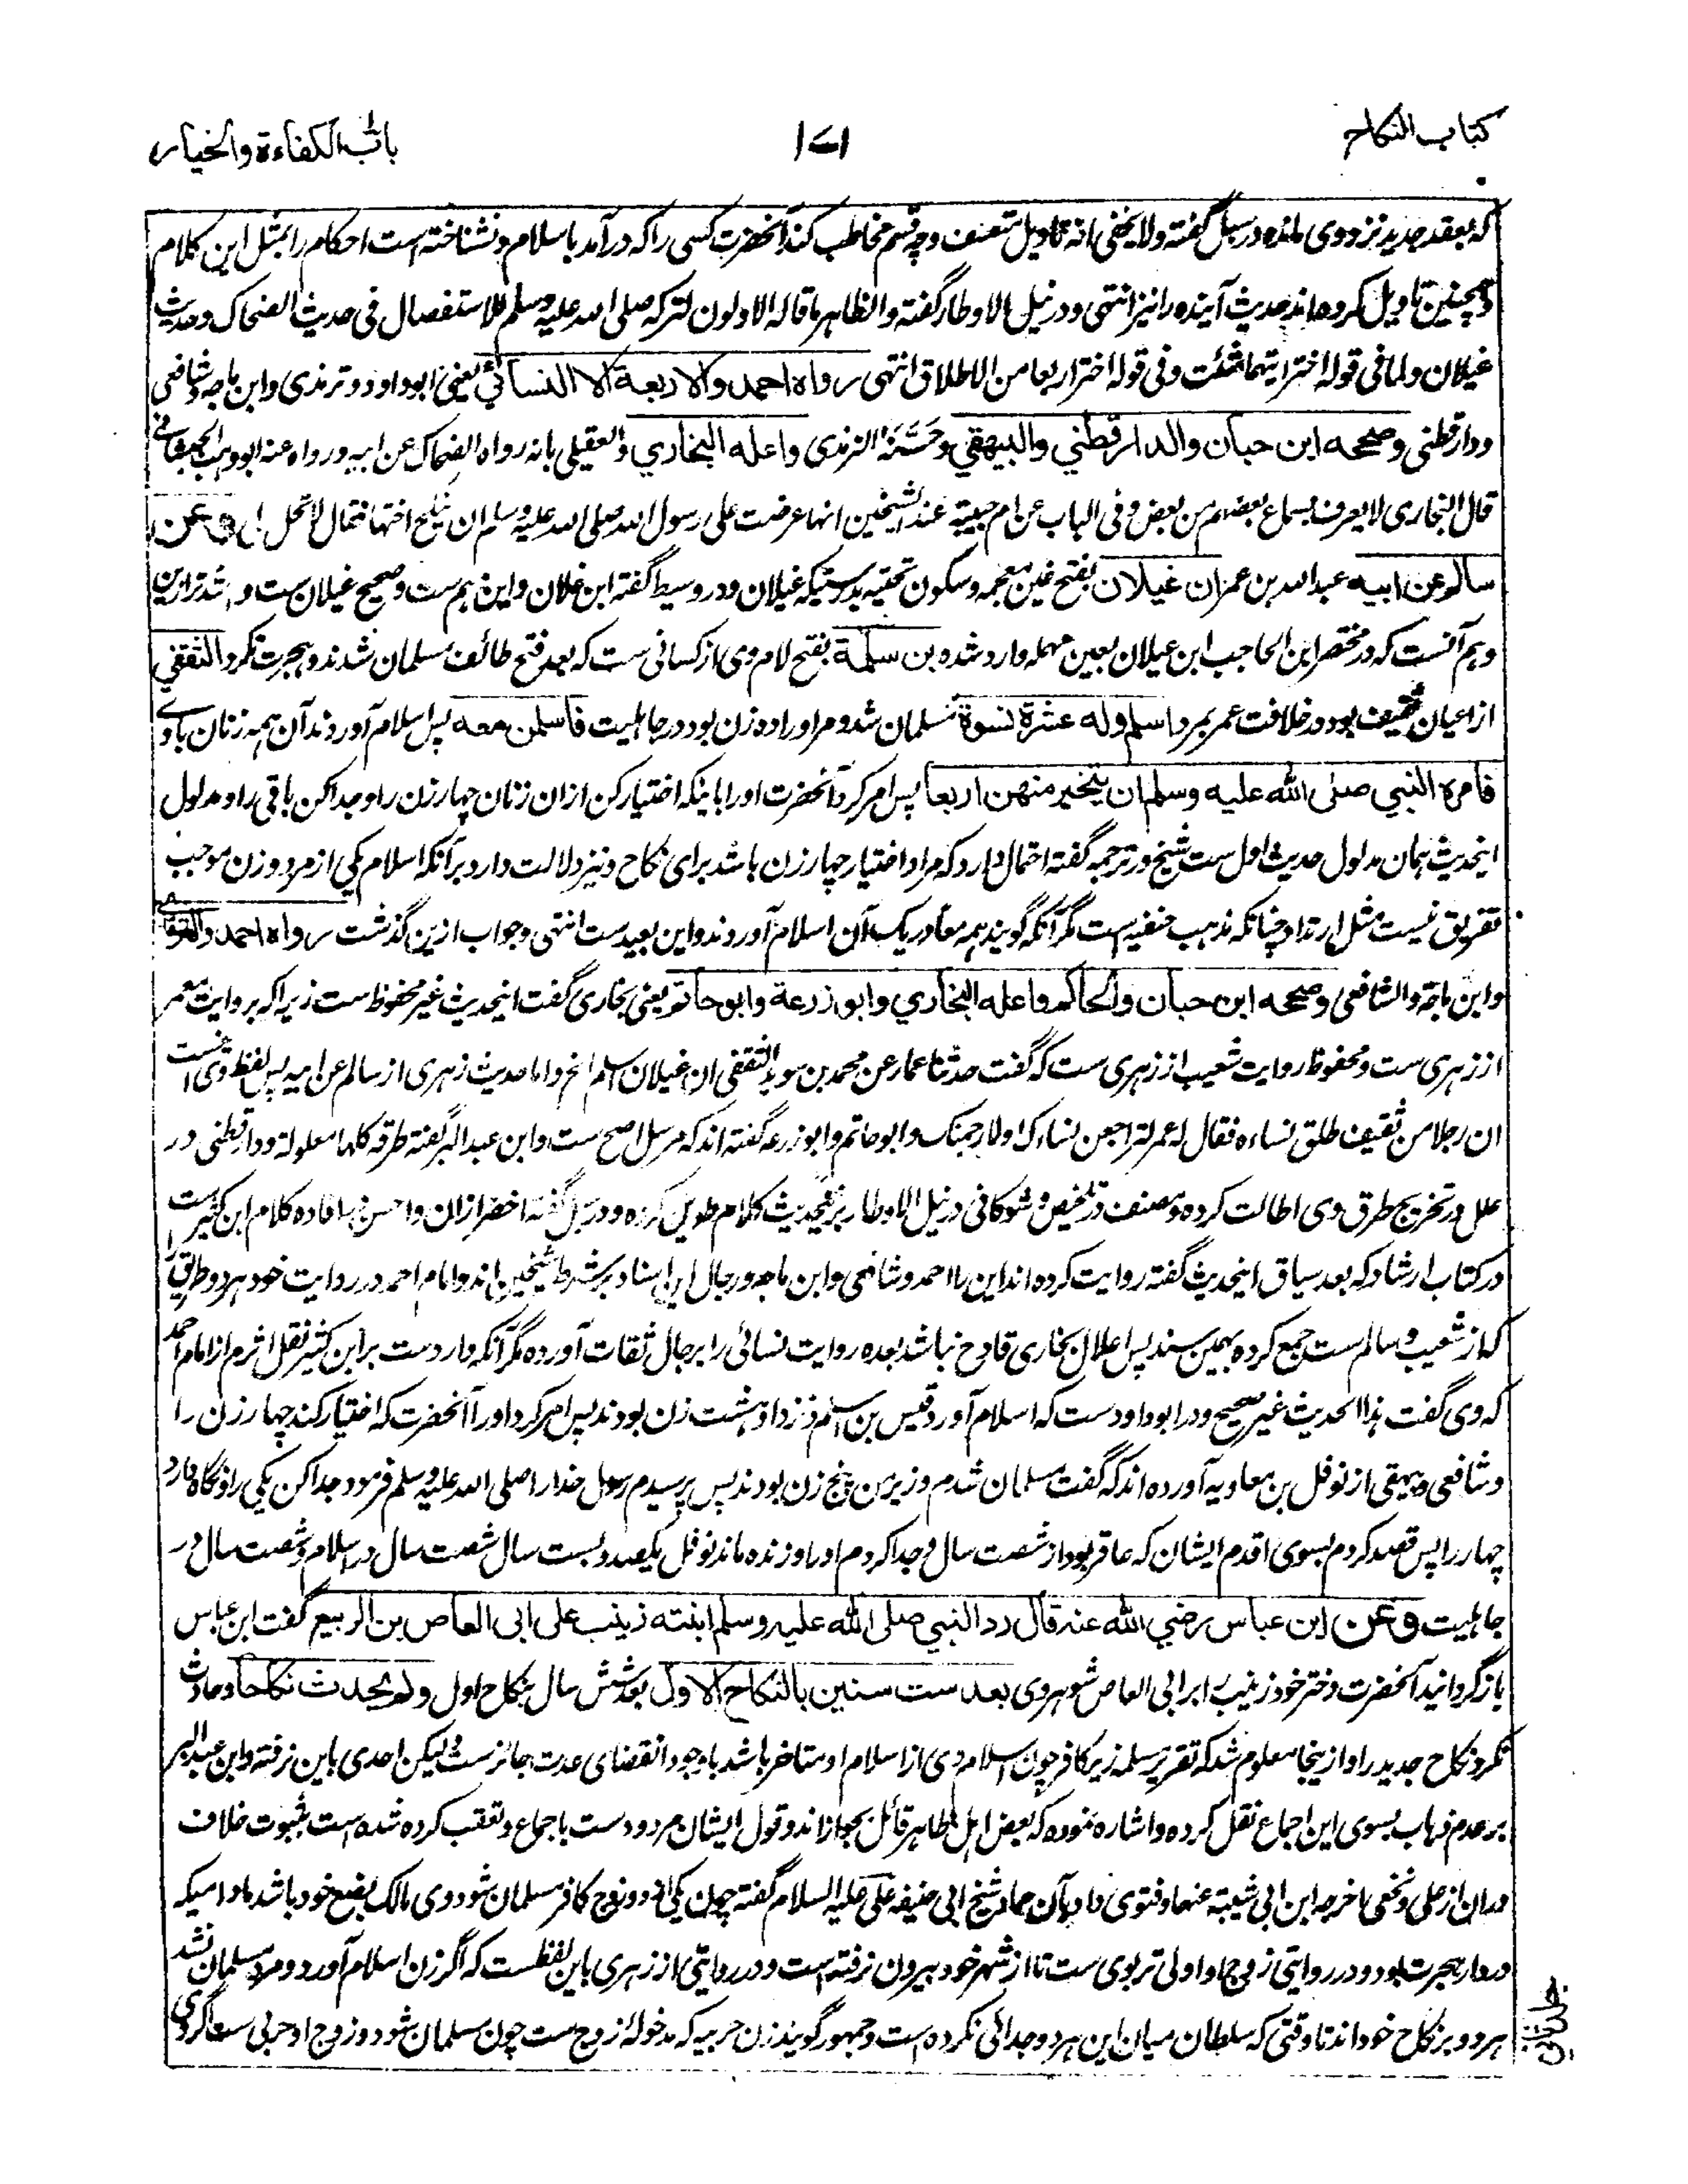 کتاب النکاح
۱۷۱
باب الکفاءة والخیار
که بعقد جدید نزد وی مانده در سبل گفته ولا یخفی انه تاویل متعسف وچه قسم مخاطب کند آنحضرت کسی را که در آمد باسلام ونشناخته است احکام را بمثل این کلام
وهمچنین تاویل کرده‌اند حدیث آینده را نیز انتهی ودر نیل الاوطار گفته والظاهر ما قاله الاولون لترکه صلی الله علیه وسلم للاستفصال فی حدیث الضحاک وحدیث
غیلان ولما فی قوله اختر ایتهما شئت وفی قوله اختر اربعا من الاطلاق انتهی رواه احمد والاربعة الا النسائی یعنی ابوداود وترمذی وابن ماجه وشافعی
ودارقطنی وصححه ابن حبان والدارقطني والبيهقي وحسنه الترمذی واعله البخاري والعقیلی بانه رواه الضحاک عن ابیه ورواه عنه ابو وهب الجیشانی
قال البخاری لا یعرف سماع بعضهم من بعض وفی الباب عن ام حبیبة عند الشیخین انها عرضت علی رسول الله صلی الله علیه وسلم ان ینکح اختها فقال لا تحل لی وعن
سالم عن ابیه عبدالله بن عمر ان غیلان بفتح غین معجمه وسکون تحتیه بدرستیکه غیلان ودر وسیط گفته ابن غلان واین وهم ست وصحیح غیلان ست و اشد تر ازین
وهم آنست که در مختصر ابن الحاجب ابن عیلان بعین مهمله وارد شده بن سلمة بفتح لام وی از کسانی ست که بعد فتح طائف مسلمان شدند وهجرت نکرد الثقفي
از اعیان ثقیف بود در خلافت عمر بمرد اسلم وله عشرة نسوة مسلمان شد ومر او را ده زن بود در جاهلیت فاسلمن معه پس اسلام آوردند آن همه زنان با وے
فامره النبي صلى الله علیه وسلم ان یتخیر منهن اربعا پس امر کرد آنحضرت او را باینکه اختیار کن ازان زنان چهار زن را وجدا کن باقی را ومدلول
اینحدیث همان مدلول حدیث اول ست شیخ در ترجمه گفته احتمال دارد که مراد اختیار چهار زن باشد برای نکاح ونیز دلالت دارد بر آنکه اسلام یکی از مرد وزن موجب
تفریق نیست مثل ارتداد چنانکه مذهب حنفیه است مگر آنکه گویند همه معا در یک آن اسلام آوردند واین بعید ست انتهی وجواب ازین گذشت رواه احمد والترمذي
وابن ماجه والشافعی وصححه ابن حبان والحاکم واعله البخاري وابو زرعة وابو حاتم یعنی بخاری گفت اینحدیث غیر محفوظ ست زیراکه بروایت معمر
از زهری ست ومحفوظ روایت شعیب از زهری ست که گفت حدثنا عمار عن محمد بن سوید الثقفی ان غیلان اسلم الخ واما حدیث زهری از سالم عن ابیه پس لفظ وی اینست
ان رجلا من ثقیف طلق نساءه فقال له عمر لتراجعن نساءک او لارجمنک وابو حاتم وابو زرعه گفته‌اند که مرسل اصح ست وابن عبدالبر گفته طرقه کلها معلولة ودارقطنی در
علل در تخریج طرق وی اطالت کرده ومصنف در تلخیص وشوکانی در نیل الاوطار برینحدیث کلام طویل کرده ودر سبل گفته اخصر ازان واحسن با فاده کلام ابن کثیر ست
در کتاب ارشاد که بعد سیاق اینحدیث گفته روایت کرده اند این را احمد وشافعی وابن ماجه ورجال این اسناد بر شرط شیخین اند وامام احمد در روایت خود هر دو طریق را
که از شعیب و سالم ست جمع کرده بهمین سند پس اعلال بخاری قادح نباشد بعده روایت نسائی را برجال ثقات آورده مگر آنکه وارد ست بر ابن کثیر نقل اثرم از امام احمد
که وی گفت هذا الحدیث غیر صحیح ودر ابوداود ست که اسلام آورد قیس بن اسلم ونزد او هشت زن بودند پس امر کرد او را آنحضرت که اختیار کند چهار زن را
وشافعی وبیهقی از نوفل بن معاویه آورده اند که گفت مسلمان شدم وزیر من پنج زن بودند پس پرسیدم رسول خدا را صلی الله علیه وسلم فرمود جدا کن یکی را ونگاه دار
چهار را پس قصد کردم بسوی اقدم ایشان که عاقر بود از شصت سال وجدا کردم او را وزنده ماند نوفل یکصد وبست سال شصت سال در اسلام وشصت سال در
جاهلیت وعن ابن عباس رضي الله عنه قال رد النبي صلى الله علیه وسلم ابنته زینب علی ابی العاص بن الربیع گفت ابن عباس
بازگردانید آنحضرت دختر خود زینب را بر ابی العاص شوهر وی بعد ست سنین بالنکاح الاول بعد شش سال بنکاح اول ولم یحدث نکاحا وحادث
نکرد نکاح جدید را وازینجا معلوم شد که تقریر مسلمه زیر کافر چون اسلام وی از اسلام او متاخر باشد باوجود انقضای عدت جائز ست ولیکن احدی باین نرفته وابن عبدالبر
بر عدم ذهاب بسوی این اجماع نقل کرده واشاره نموده که بعض اهل ظاهر قائل بجواز اند وقول ایشان مردود ست باجماع وتعقب کرده شده است بثبوت خلاف
دران از علی ونخعی اخرجه ابن ابی شیبة عنهما وفتوی داد بآن حماد شیخ ابی حنیفه علی علیه السلام گفته چون یکی از دو زوج کافر مسلمان شود وی مالک بضع خود باشد مادامیکه
در دار هجرت بود ودر روایتی زوجها اولی تر بوی ست تا از شهر خود بیرون نرفته است ودر روایتی از زهری باین لفظ ست که اگر زن اسلام آورد ومرد مسلمان نشد
هر دو بر نکاح خود اند تا وقتی که سلطان میان این هر دو جدائی نکرده است وجمهور گویند زن حربیه که مدخولهٔ زوج ست چون مسلمان شود وزوج او حربی ست اگر وی